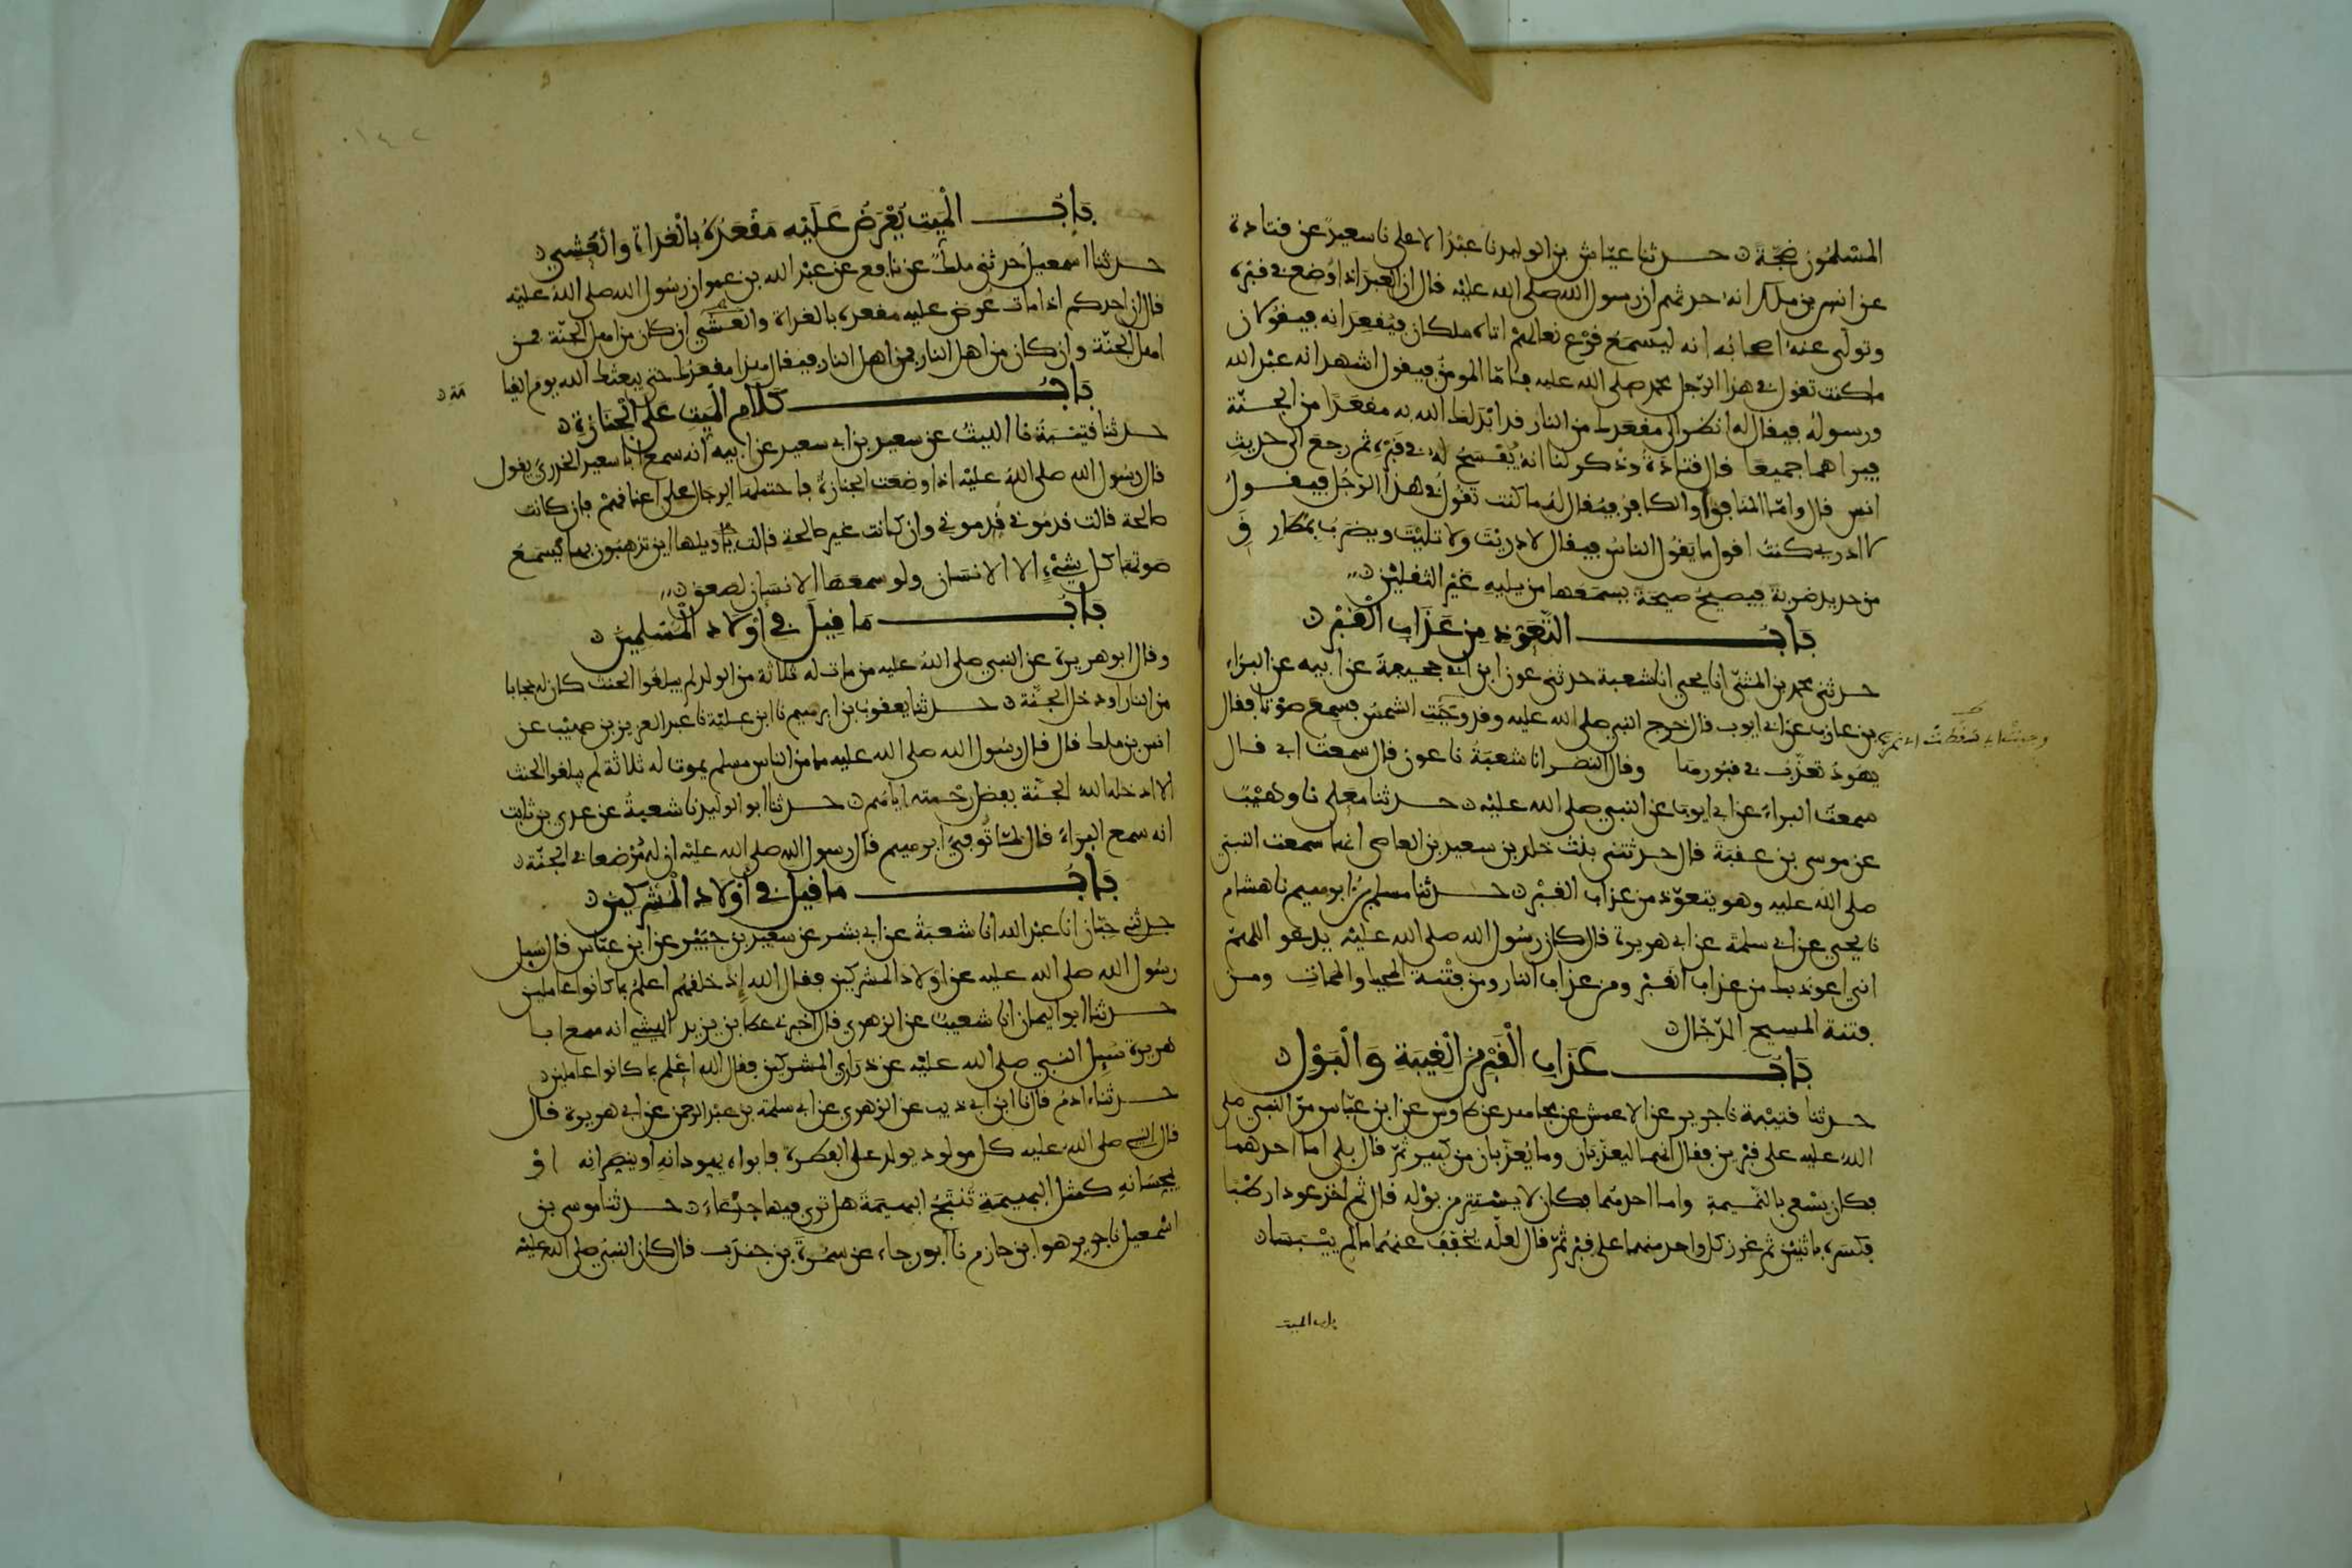 المسلمون ضجّة حدثنا عيّاش بن الوليد نا عبد الاعلى نا سعيد عن قتادة
عن انس بن ملك انه حدثهم ان رسول الله صلى الله عليه قال ان العبد اذا وُضع في قبره
وتولى عنه اصحابُه انه ليسمع قرْع نعالهمْ اتاه ملكان فيُقعدَانه فيقولان
ما كنت تقول في هذا الرّجل محمد صلى الله عليه فامّا المومنُ فيقول اشهد انه عبْد الله
ورسولهُ فيقال له انظر الى مقعدك من النار قد ابْدَلك الله به مقعدًا من الجنّة
فيراهما جميعا قال قتادة وذُكر لنا انهُ يُفْسَحُ لهُ في قبْره ثم رجع الى حديث
انس قال وامّا المنافق او الكافر فيُقال لهُ ما كنت تقولُ في هذا الرّجُل فيقول
لا ادري كنتُ اقول ما يَقُول الناسُ فيقال لا دريْتَ ولا تليْتَ ويضرَبُ بمطارق
من حديد ضربةً فيصيحُ صيحَةً يسمَعها من يليه غيْر الثقليْن
بَابُ التّعَوّذِ مِن عَذَابِ الْقَبْر
حدثني محمد بن المثنّى انا يحيى انا شعبة حدثني عون ابن ابي جحيفة عن ابيه عن البرَاء
بن عازب عن ابي ايوب قال خرج النبي صلى الله عليه وقد وجَبَتِ الشمسُ فسمعَ صوْتا فقال
يهُودُ تعذّبُ في قبُورها وقال النضر انا شعبَة نا عون قال سمعتُ ابي قال
سمعت البراءَ عن ابي ايوب عن النبي صلى الله عليْه حدثنا معلى نا وهيْبٌ
عن موسى بن عقبَة قال حدثتني بنتُ خلد بن سعيد بن العاصي انها سمعت النبيّ
صلى الله عليه وهو يتعوّذ من عذاب القبْر حدثنا مسلم بنُ ابرهيم نا هشام
نا يحيى عن ابي سلمة عن ابي هريرة قال كان رسُول الله صلى الله عليْه يدعو اللهمّ
اني اعوذ بك من عذاب القبْر ومن عذاب النار ومن فِتْنة المحيا والممات ومن
فتنة المسيح الدّجّال
بَابُ عَذَابِ الْقَبْرِ مِنَ الْغِيبَةِ وَالْبَوْلِ
حدثنا قتيْبة نا جرير عن الاعمش عن مجاهد عن طاوس عن ابن عبّاس مرّ النبي صلى
الله عليه على قبْرين فقال انهما ليعذّبَان وما يُعَذّبان من كبير ثمّ قال بلى اما احدهما
فكان يسْعى بالنّميمةِ واما احدهما فكان لا يسْتتِر من بوْله قال ثم اخذ عودا رطْبًا
فكسَره باثنيْن ثم غرز كل واحد منهما على قبْر ثمّ قال لعلّه يخفّفُ عنهُما ما لم ييْبَسَا
باب الميت
بَابُ الْمَيتِ يُعْرَضُ عَلَيْهِ مَقْعَدُهُ بِالْغدَاةِ وَالْعَشِيِّ
حدثنا اسمعيلُ حدثني ملك عن نافع عن عبْد الله بن عمر ان رسُول الله صلى الله عليْه
قال ان احدكم اذا مات عُرض عليه مقعده بالغداة والعشيّ ان كان من اهل الجنّة فمن
اهل الجنّة وان كان من اهل النار فمن اهل النار فيقال هذا مقعدك حتى يبعثك الله يوم القيا
مَة
بَابُ كَلَامِ الْمَيّتِ عَلَى الْجَنَازةِ
حدثنا قتيْبَة نا الليثُ عن سعيد بن ابي سعيد عن ابيه انه سمع ابا سعيد الخدريّ يقول
قال رسُول الله صلى الله عليْه اذا وضعت الجنازةُ فاحتملها الرجالُ على اعناقهمْ فان كانت
صالحة قالت قدمُوني قدموني وان كانت غير صالحة قالت يا ويلها اين تذهبُون بها يسمَعُ
صوتها كل شيْءٍ الا الانسَان ولو سمعَها الانسَان لصعق
بَابُ مَا قِيلَ فِي اَوْلَادِ الْمُسْلِمِينَ
وقال ابو هريرة عن النبي صلى الله عليه من مات له ثلاثة من الولد لم يبلغُوا الحنث كان له حجابا
من النار او دخل الجنّة حدثنا يعقوب بن ابرهيم نا ابن عليّة نا عبد العزيز بن صهيْب عن
انس بن ملك قال قال رسُول الله صلى الله عليه ما من الناس مسلم يموت له ثلاثة لم يبلغوا الحنث
الا ادخله الله الجنّة بفضل رحْمته اياهُم حدثنا ابو الوليد نا شعبةُ عن عدي بن ثابت
انه سمع البراءَ قال لمّا تُوفيَ ابرهيم قال رسول الله صلى الله عليْه ان له مُرْضعا في الجنّة
بَابُ مَا قِيلَ فِي اَوْلَادِ الْمُشْرِكِين
حدثني حبّان انا عبْد الله انا شعبَة عن ابي بشر عن سعيْد بن جبَيْر عن ابن عبّاس قال سُيل
رسُول الله صلى الله عليه عن اوْلاد المشركين فقال الله اِذ خلقهُم اعلمُ بما كانوا عاملين
حدثنا ابو اليمان انا شعيبٌ عن الزهري قال اخبرني عطا بن يزيد الليثي انه سمع ابا
هريرة سُيل النبي صلى الله عليْه عن ذراري المشركين فقال الله اعْلم بما كانوا عاملين
حدثنا ادمُ قال نا ابن ابي ذيب عن الزهري عن ابي سلمة بن عبْد الرحمن عن ابي هريرة قال
قال النبي صلى الله عليه كل مولود يولد على الفطرة فابواه يهودانه او ينصرانه اوْ
يمجسَانهِ كمثل البهيمَةِ تُنْتَجُ البهيمَة هل ترى فيها جدْعَاءَ حدثنا موسى بن
اسْمعيل نا جرير هو ابن حازم نا ابو رجاء عن سمُرَةَ بن جندَب قال كان النبيّ صلى الله عليْه